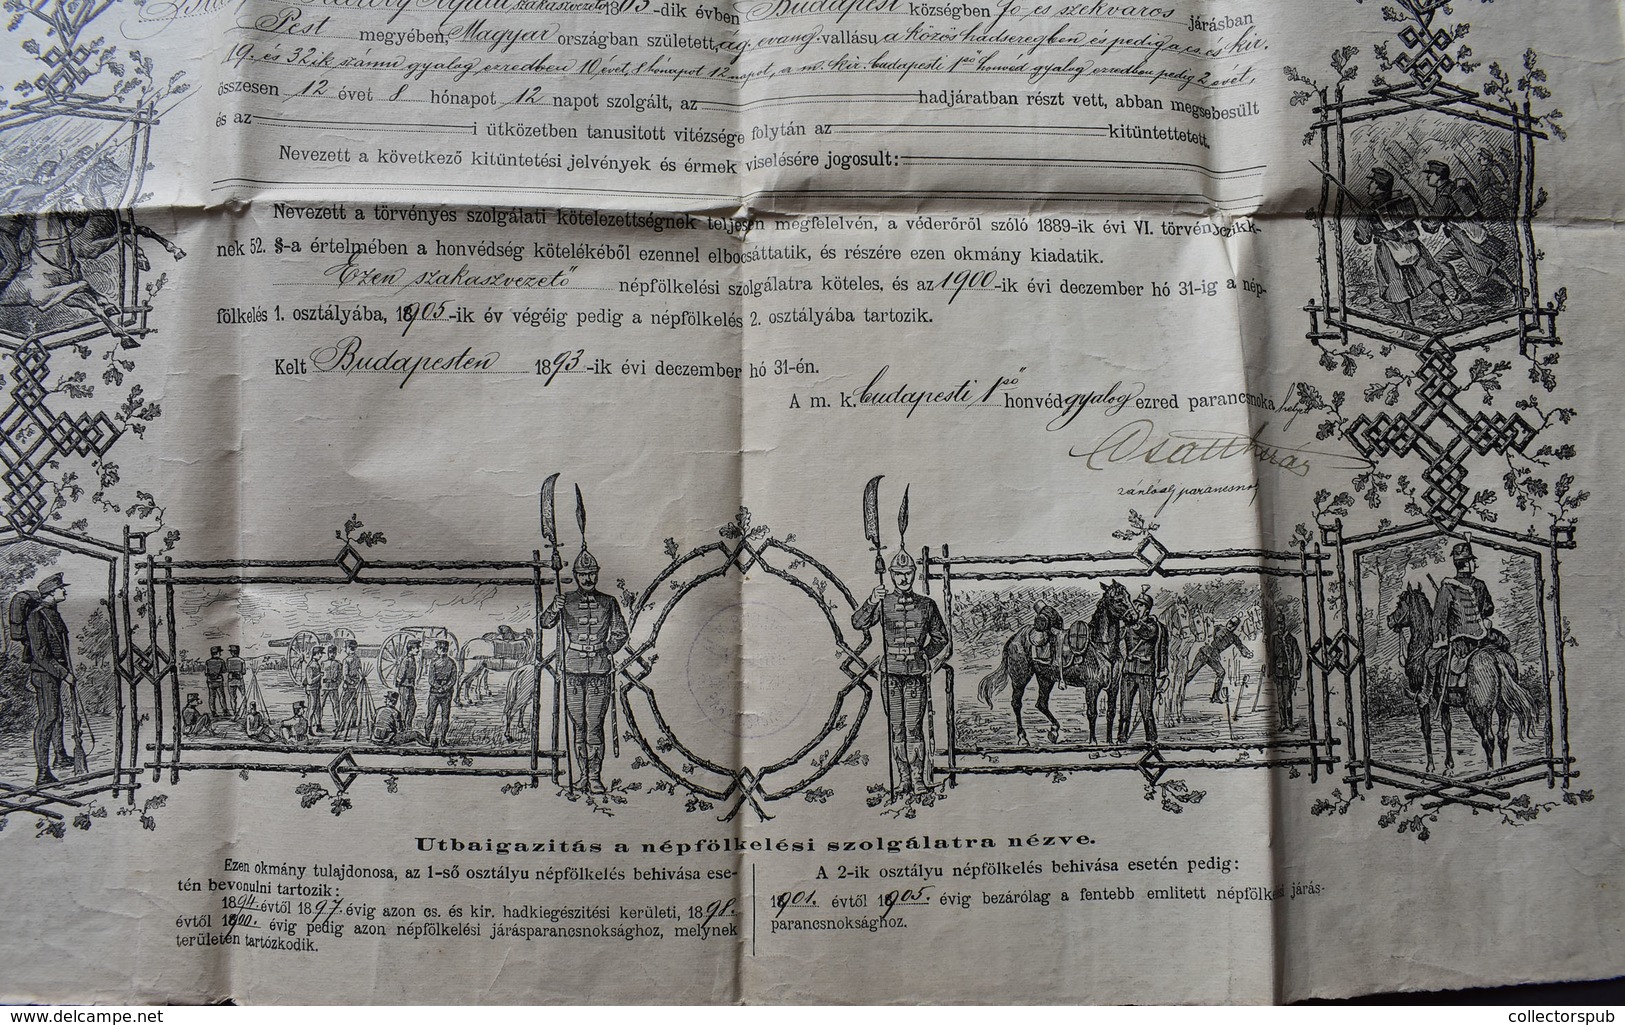 szakaszvezető 1863-dik évben Budapest községben fő és székváros járásban
Pest megyében, Magyar országban született, ág. evang. vallásu a közös hadseregben és pedig a cs. és kir.
19. és 32ik számu gyalog ezredben 10 évet, 8 hónapot 12 napot, a m. kir. budapesti 1ső honvéd gyalog ezredben pedig 2 évet,
összesen 12 évet 8 hónapot 12 napot szolgált, az hadjáratban részt vett, abban megsebesült
és az i ütközetben tanusitott vitézsége folytán az kitüntettetett.
Nevezett a következő kitüntetési jelvények és érmek viselésére jogosult:
Nevezett a törvényes szolgálati kötelezettségnek teljesen megfelelvén, a véderőről szóló 1889-ik évi VI. törvényczikk-
nek 52. §-a értelmében a honvédség kötelékéből ezennel elbocsáttatik, és részére ezen okmány kiadatik.
Ezen szakaszvezető népfölkelési szolgálatra köteles, és az 1900-ik évi deczember hó 31-ig a nép-
fölkelés 1. osztályába, 1905-ik év végéig pedig a népfölkelés 2. osztályába tartozik.
Kelt Budapesten 1893-ik évi deczember hó 31-én.
A m. k. budapesti 1ső honvéd gyalog ezred parancsnoka helyett
zászlóalj parancsnok
Utbaigazitás a népfölkelési szolgálatra nézve.
Ezen okmány tulajdonosa, az 1-ső osztályu népfölkelés behivása ese-
tén bevonulni tartozik:
1894. évtől 1897. évig azon cs. és kir. hadkiegészitési kerületi, 1898.
évtől 1900. évig pedig azon népfölkelési járásparancsnoksághoz, melynek
területén tartózkodik.
A 2-ik osztályu népfölkelés behivása esetén pedig:
1901. évtől 1905. évig bezárólag a fentebb emlitett népfölkelési járás-
parancsnoksághoz.
www.delcampe.net
collectorspub